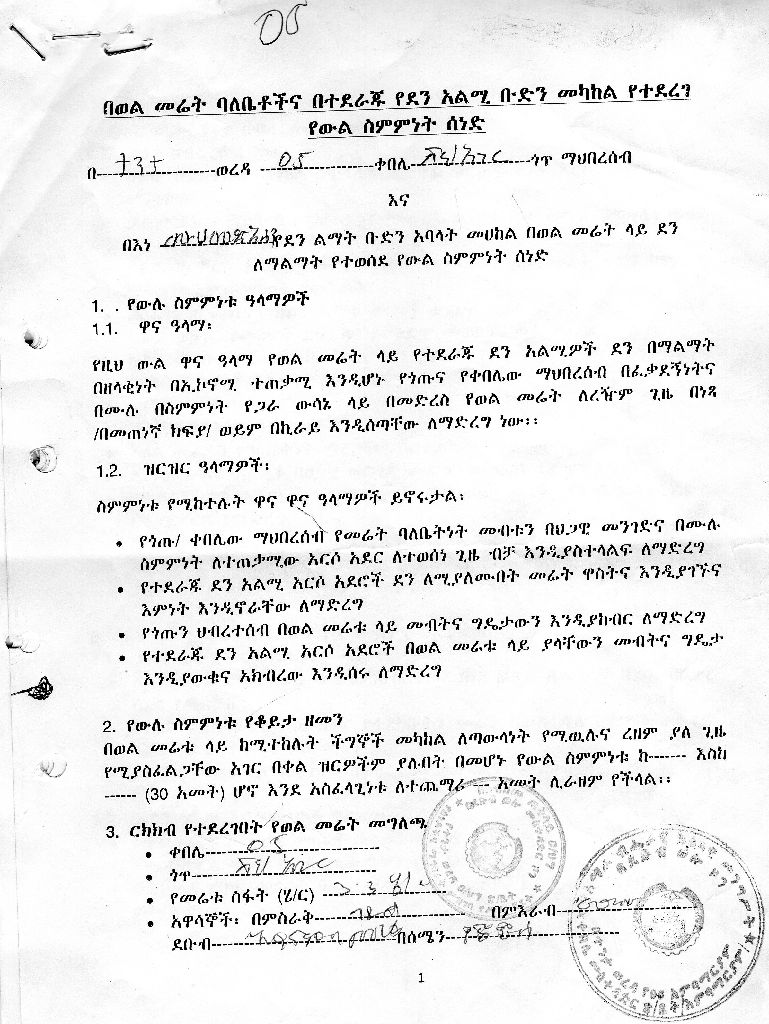 05
በወል መሬት ባለቤቶችና በተደራጁ የደን አልሚ ቡድን መካከል የተደረገ
የውል ስምምነት ሰነድ
በ----------ወረዳ 05 ቀበሌ ----------ጎጥ ማህበረሰብ
እና
በእነ የደን ልማት ቡድን አባላት መሀከል በወል መሬት ላይ ደን
ለማልማት የተወሰደ የውል ስምምነት ሰነድ
1. . የውሉ ስምምነቱ ዓላማዎች
1.1. ዋና ዓላማ፡
የዚህ ውል ዋና ዓላማ የወል መሬት ላይ የተደራጁ ደን አልሚዎች ደን በማልማት
በዘላቂነት በኢኮኖሚ ተጠቃሚ እንዲሆኑ የጎጡና የቀበሌው ማህበረሰብ በፈቃደኝነትና
በሙሉ በስምምነት የጋራ ውሳኔ ላይ በመድረስ የወል መሬት ለረዥም ጊዜ በነጻ
/በመጠነኛ ክፍያ/ ወይም በኪራይ እንዲሰጣቸው ለማድረግ ነው፡፡
1.2. ዝርዝር ዓላማዎች፡
ስምምነቱ የሚከተሉት ዋና ዋና ዓላማዎች ይኖሩታል፡
• የጎጡ/ ቀበሌው ማህበረሰብ የመሬት ባለቤትነት መብቱን በህጋዊ መንገድና በሙሉ
ስምምነት ለተጠቃሚው አርሶ አደር ለተወሰነ ጊዜ ብቻ እንዲያስተላልፍ ለማድረግ
• የተደራጁ ደን አልሚ አርሶ አደሮች ደን ለሚያለሙበት መሬት ዋስትና እንዲያገኙና
እምነት እንዲኖራቸው ለማድረግ
• የጎጡን ህብረተሰብ በወል መሬቱ ላይ መብትና ግዴታውን እንዲያከብር ለማድረግ
• የተደራጁ ደን አልሚ አርሶ አደሮች በወል መሬቱ ላይ ያላቸውን መብትና ግዴታ
እንዲያውቁና አክብረው እንዲሰሩ ለማድረግ
2. የውሉ ስምምነቱ የቆይታ ዘመን
በወል መሬቱ ላይ ከሚተከሉት ችግኞች መካከል ለጣውላነት የሚዉሉና ረዘም ያለ ጊዜ
የሚያስፈልጋቸው አገር በቀል ዝርዎችም ያሉበት በመሆኑ የውል ስምምነቱ ከ------- እስከ
------ (30 አመት) ሆኖ እንደ አስፈላጊነቱ ለተጨማሪ---- አመት ሊራዘም የችላል፡፡
3. ርክክብ የተደረገበት የወል መሬት መግለጫ
• ቀበሌ---05---
• ጎጥ----------
• የመሬቱ ስፋት (ሄ/ር)
• አዋሳኞች፡ በምስራቅ---------- በምእራብ----------
ደቡብ---------- በሰሜን----------
1